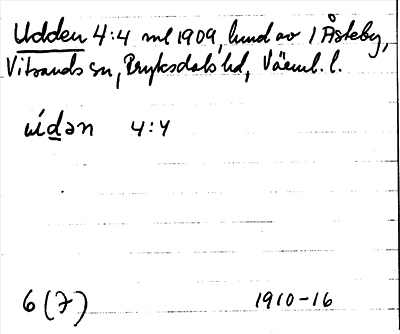 Udden 4:4 ml 1909, lund av 1 Åsteby,
Vitsands sn, Fryksdals hd, Värml. l.
ùdən 4:4
6 (7) 1910-16